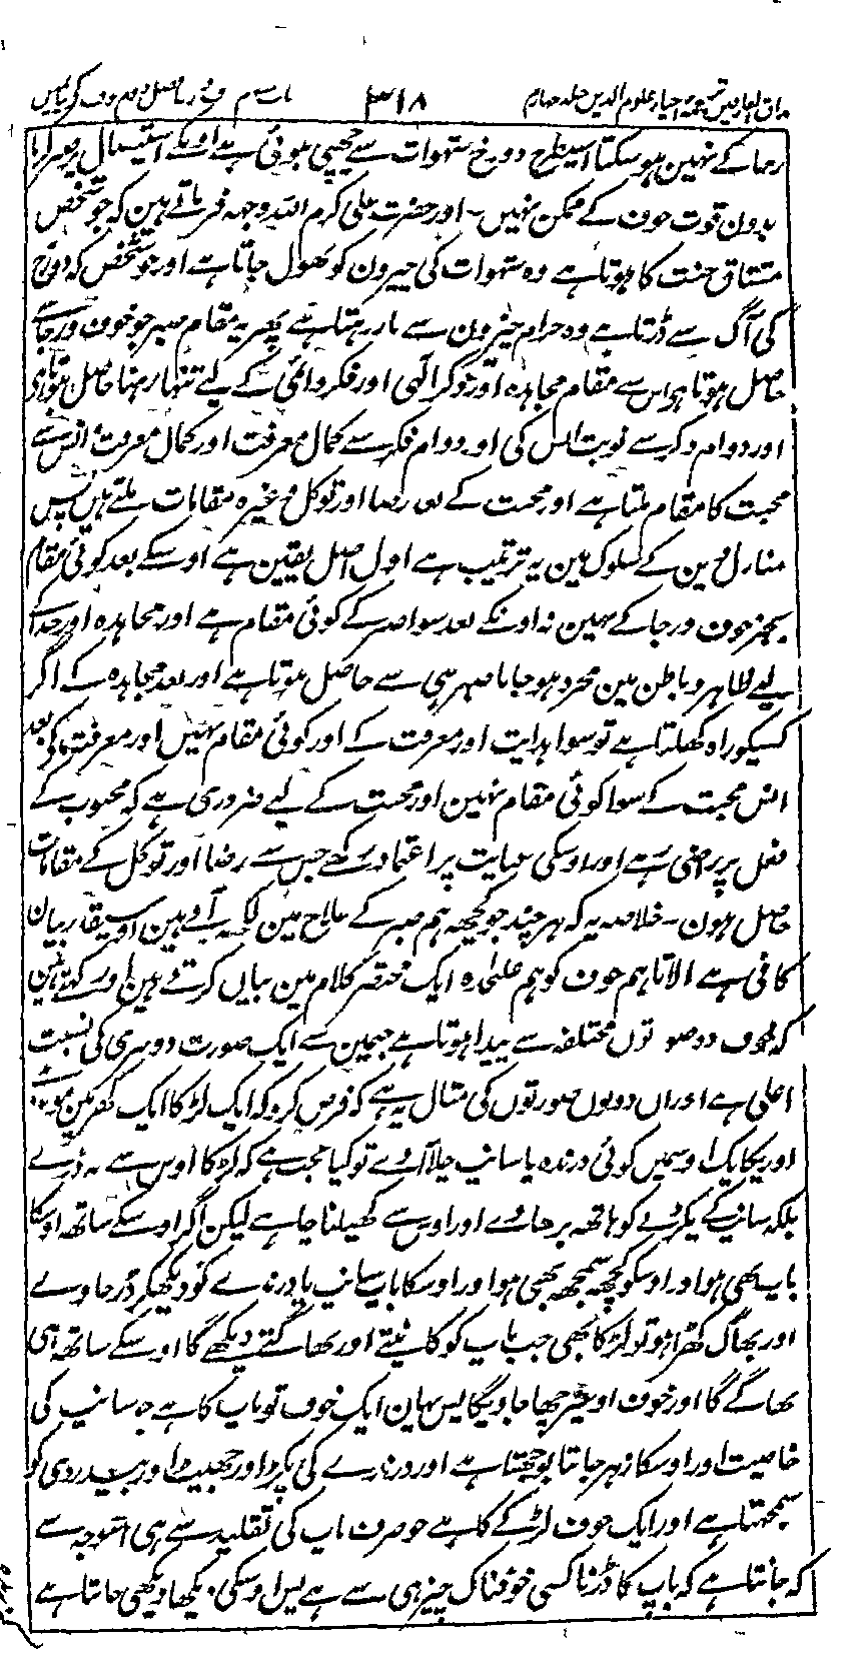 مذاق العارفین ترجمہ احیاء علوم الدین جلد چہارم ۳۱۸ باب سوم
رجا کے نہین ہو سکتا اسیطرح دوزخ شہوات سے چھپی ہوئی ہے اوسکے استیصال پر صبر کرنا
بدون قوت خوف کے ممکن نہیں۔ اور حضرت علی کرم اللہ وجہہ فرماتے ہین کہ جو شخص
مشتاق جنت کا ہوتا ہے وہ شہوات کی چیزون کو بھول جاتا ہے اور جو شخص کہ دوزخ
کی آگ سے ڈرتا ہے وہ حرام چیزون سے باز رہتا ہے پھر یہ مقام صبر جو خوف ورجا سے
حاصل ہوتا ہے اس سے مقام مجاہدہ اور ذکر الٰہی اور فکر دائمی کے لیے تنہا رہنا حاصل ہوتا ہے
اور دوام ذکر سے نوبت انس کی اور دوام فکر سے کمال معرفت اور کمال معرفت و انس سے
محبت کا مقام ملتا ہے اور محبت کے بعد رضا اور توکل وغیرہ مقامات ملتے ہیں پس
منازل دین کے سلوک مین یہ ترتیب ہے اول اصل یقین ہے اوسکے بعد کوئی مقام
بجز خوف ورجا کے نہین نہ اونکے بعد سوا صبر کے کوئی مقام ہے اور مجاہدہ اور خدا کے
لیے ظاہر و باطن مین مجرد ہو جانا صبر ہی سے حاصل ہوتا ہے اور بعد مجاہدہ کے اگر
کسیکو راہ کھلتا ہے تو سوا ہدایت اور معرفت کے اور کوئی مقام نہیں اور معرفت کے بعد
انس محبت کے سوا کوئی مقام نہین اور محبت کے لیے ضروری ہے کہ محبوب کے
فعل پر راضی رہے اور اوسکی عنایت پر اعتماد رکھے جس سے رضا اور توکل کے مقامات
حاصل ہون۔ خلاصہ یہ کہ ہر چند جو کچھ ہم صبر کے علاج مین لکھ آئے ہین اوسیقدر بیان
کافی ہے الا تاہم خوف کو ہم علیٰحدہ ایک مختصر کلام مین بیان کرتے ہین اور کہتے ہین
کہ خوف دو صورتوں مختلفہ سے پیدا ہوتا ہے جنمین سے ایک صورت دوسری کی نسبت
اعلی ہے اور ان دونوں صورتوں کی مثال یہ ہے کہ فرض کرو کہ ایک لڑکا ایک گھر مین ہووے
اور یکایک اوسمیں کوئی درندہ یا سانپ چلا آوے تو کیا عجب ہے کہ لڑکا اوس سے نہ ڈرے
بلکہ سانپ کے پکڑنے کو ہاتھ بڑھاوے اور اوس سے کھیلنا چاہے لیکن اگر اوسکے ساتھ اوسکا
باپ بھی ہو اور اوسکو کچھ سمجھ بھی ہو اور اوسکا باپ سانپ یا درندے کو دیکھکر ڈر جاوے
اور بھاگ کھڑا ہو تو لڑکا بھی جب باپ کو کانپتے اور بھاگتے دیکھے گا اوسکے ساتھ ہی
بھاگے گا اور خوف اوسپر چھا جاویگا پس یہان ایک خوف تو باپ کا ہے جو سانپ کی
خاصیت اور اوسکا زہر جانتا بوجھتا ہے اور درندے کی پکڑ اور جھپٹ اور بیدردی کو
سمجھتا ہے اور ایک خوف لڑکے کا ہے جو صرف باپ کی تقلید سے ہی اسوجہ سے
کہ جانتا ہے کہ باپ کا ڈرنا کسی خوفناک چیز ہی سے ہے پس اوسکی دیکھا دیکھی جانتا ہے